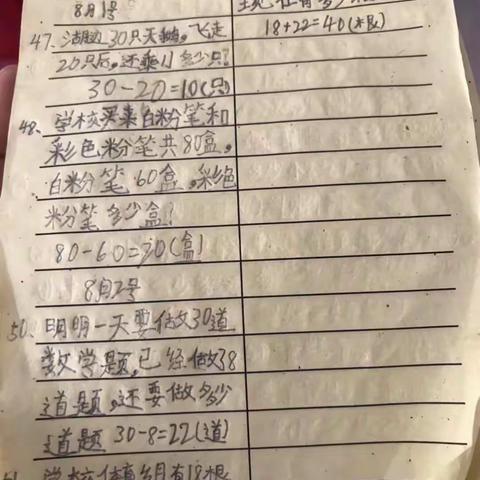 8月1号
47、湖边30只天鹅,飞走
20只后,还剩几多少只?
30-20=10(只)
48、学校买来白粉笔和
彩色粉笔共80盒,
白粉笔60盒,彩色
粉笔多少盒?
80-60=20(盒)
8月2号
50、明明一天要做30道
数学题,已经做了8
道题,还要做多少
道题 30-8=22(道)
学校体育
月有18根
18+22=40(根)